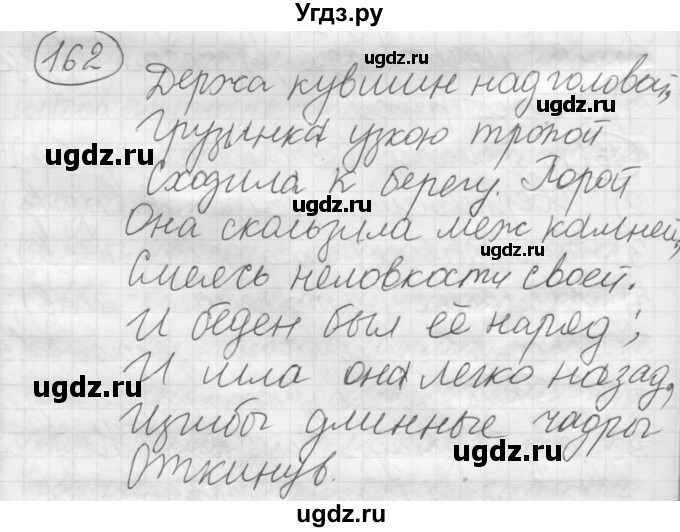 Угдз.ру
162
Держа кувшин над головой,
Грузинка узкою тропой
Сходила к берегу. Порой
Она скользила меж камней,
Смеясь неловкости своей.
И беден был её наряд;
И шла она легко назад,
Изгибы длинные чадры
Откинув.
ugdz.ru
ugdz.ru
ugdz.ru
ugdz.ru
ugdz.ru
ugdz.ru
ugdz.ru
ugdz.ru
ugdz.ru
ugdz.ru